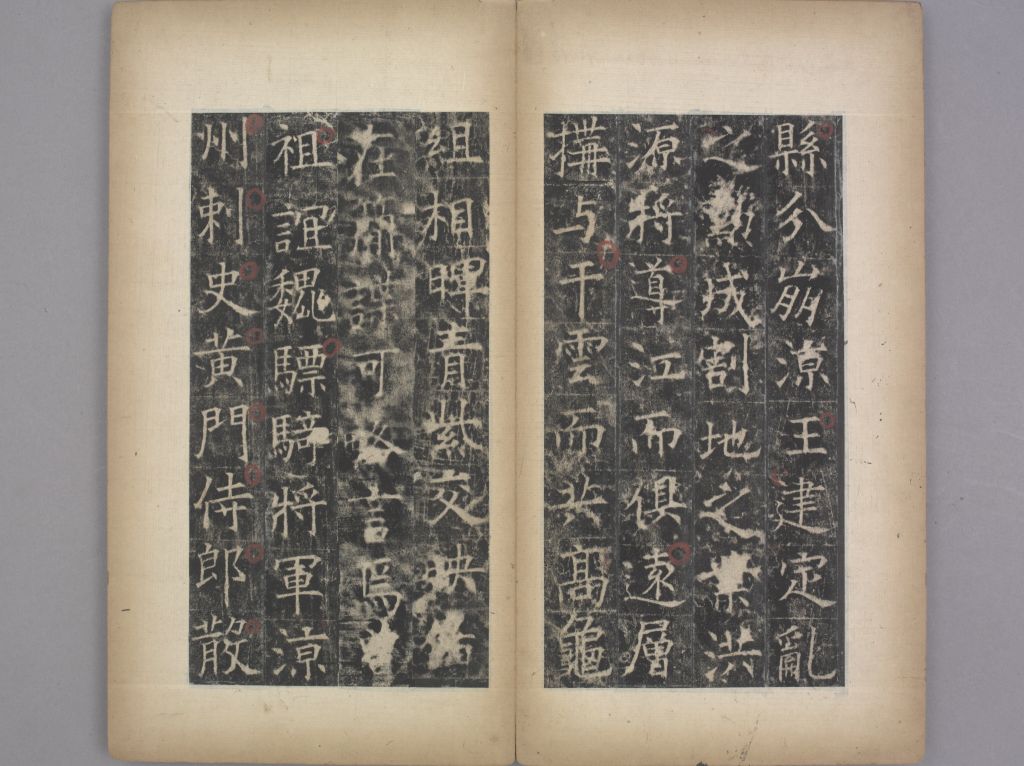 縣分崩涼王建定亂
之勳成割地之業洪
源將導江而俱遠層
構与干雲而共高龜
組相暉青紫交映備
在簡諜可略言焉曾
祖誼魏驃騎將軍涼
州刺史黃門侍郎散